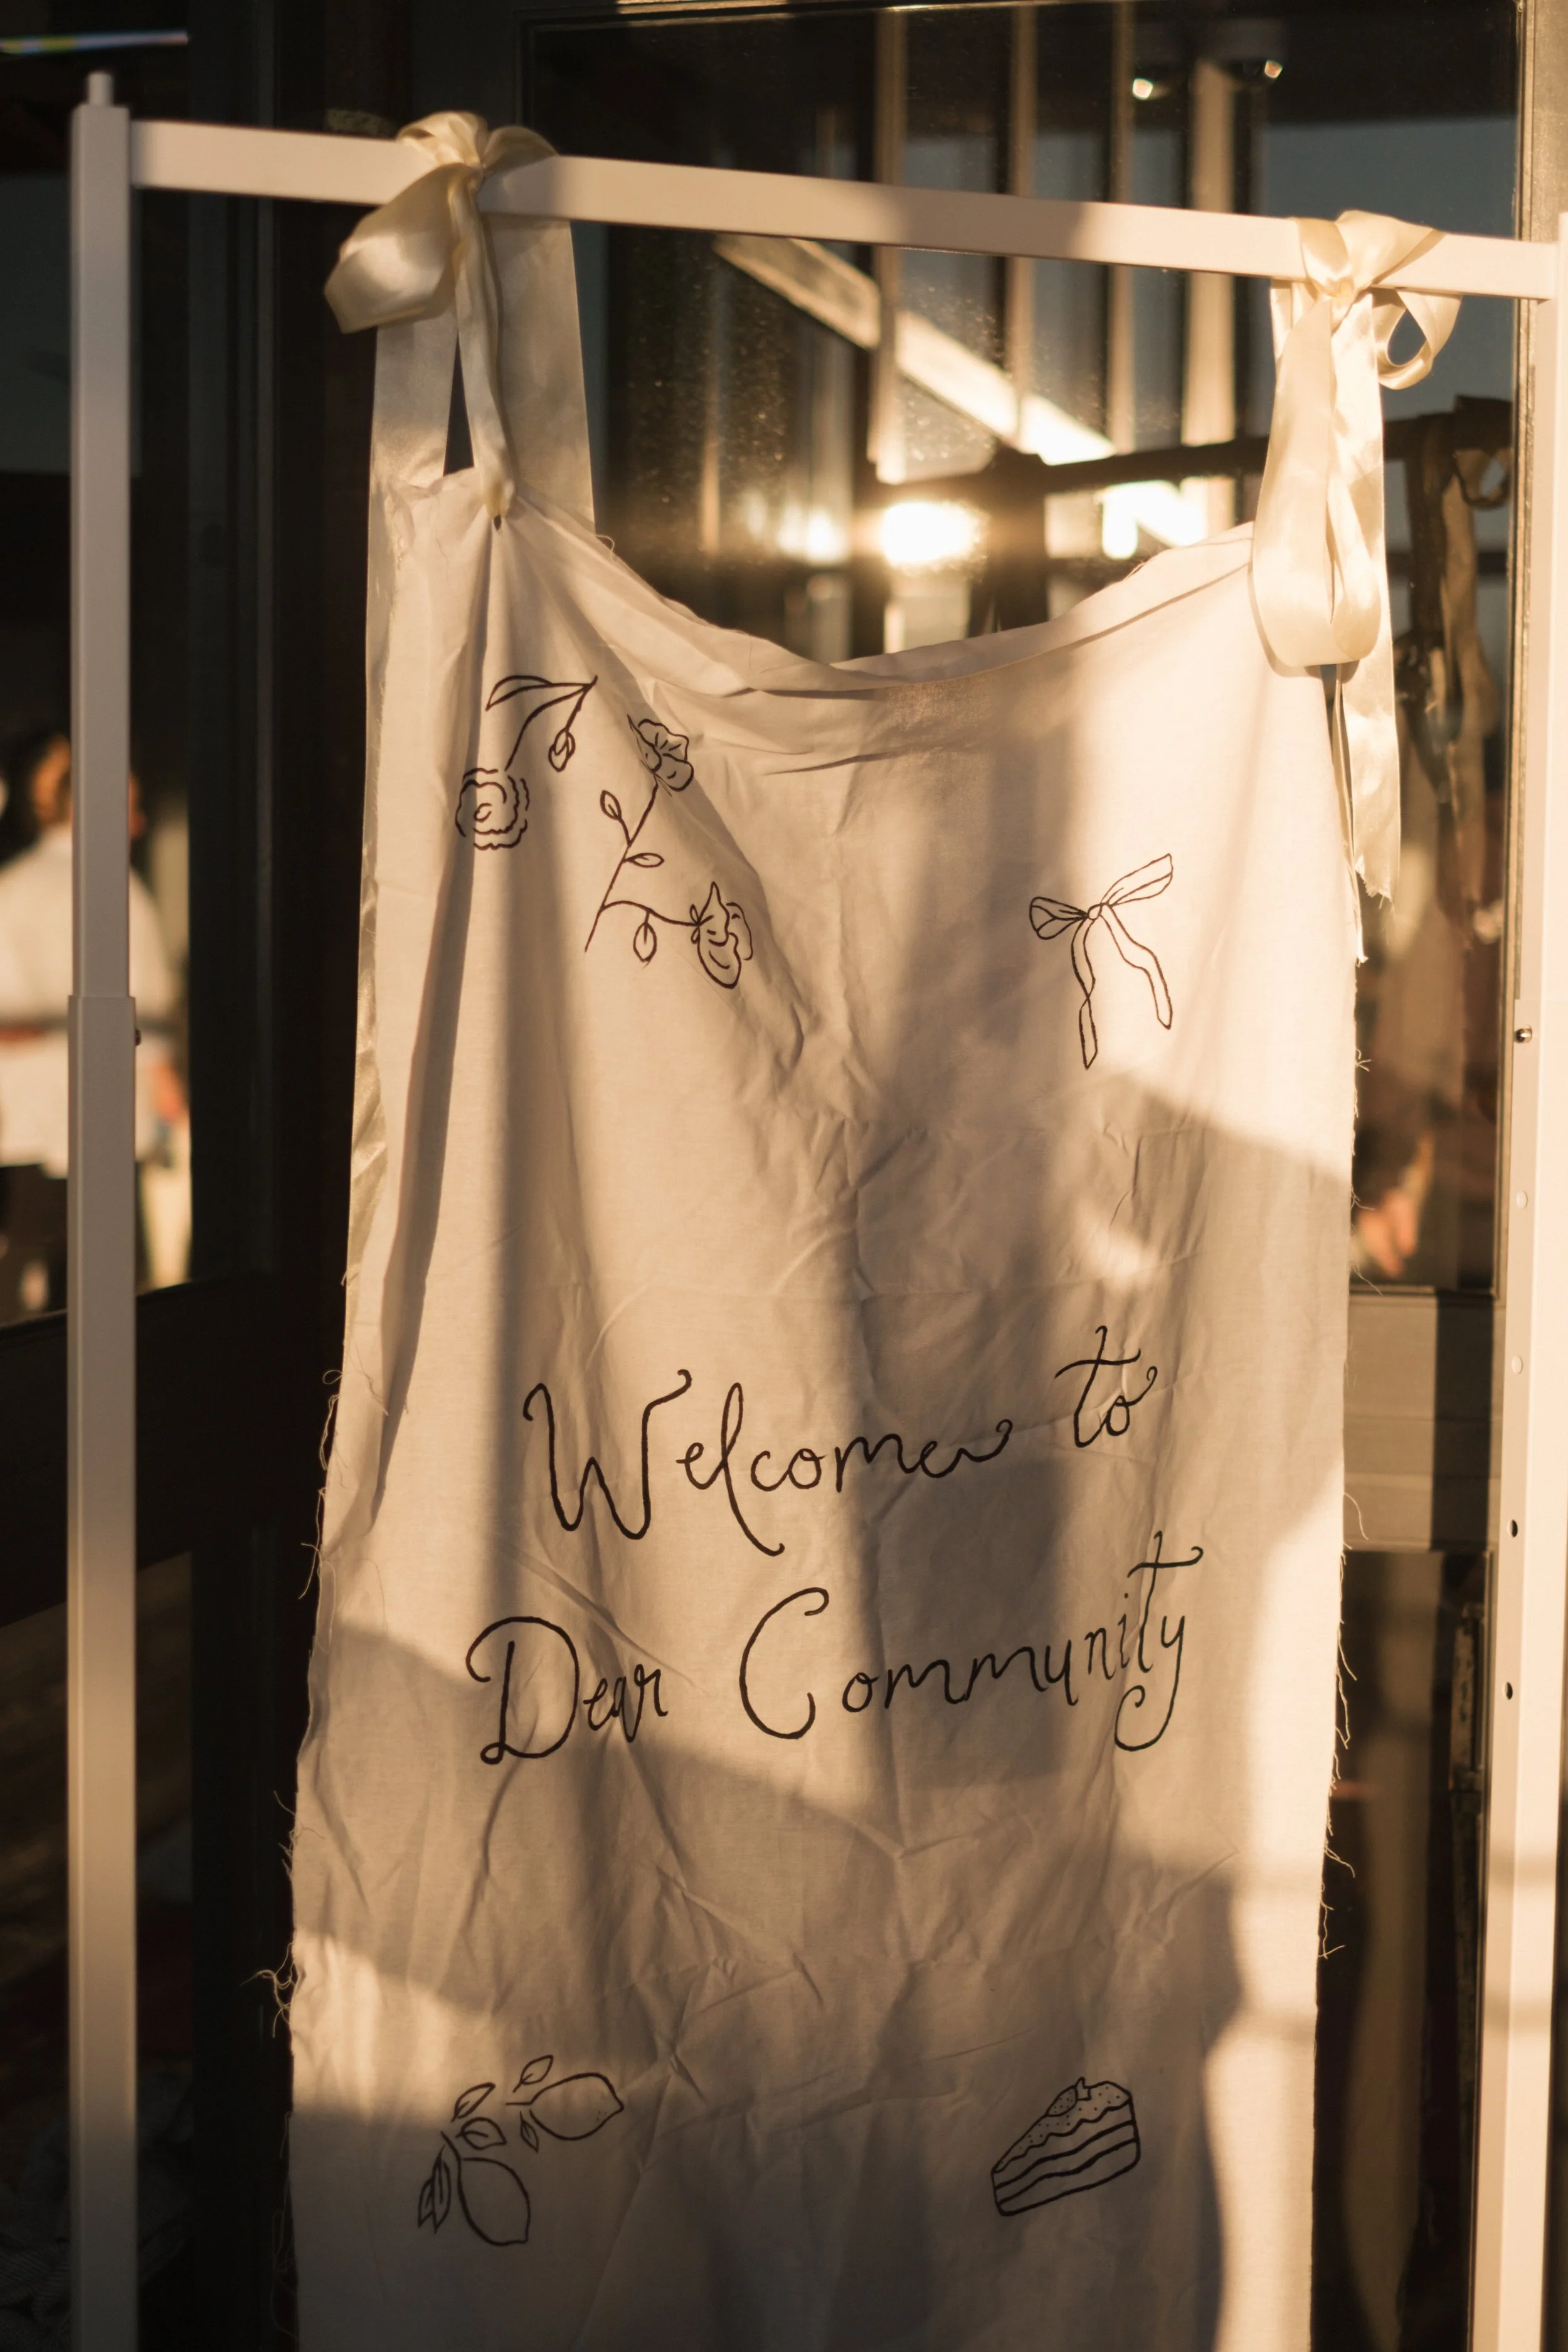 Welcome to
Dear Community